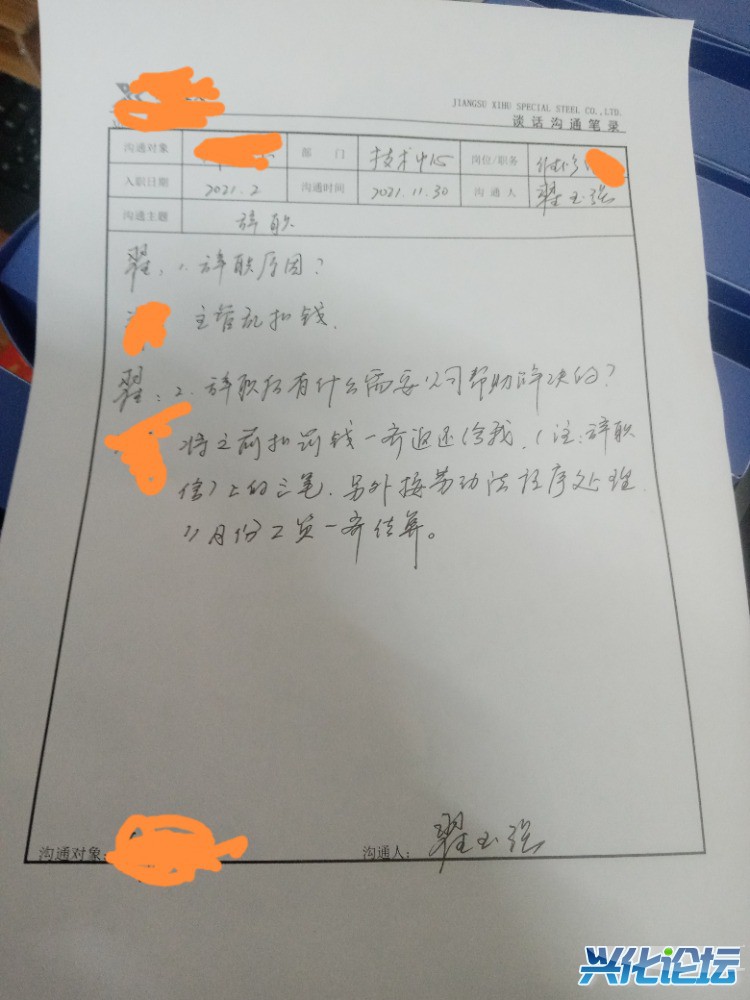 JIANGSU XIHU SPECIAL STEEL CO.,LTD.
谈话沟通笔录
沟通对象 部 门 技术中心 岗位/职务
入职日期 2021.2 沟通时间 2021.11.30 沟 通 人 翟玉强
沟通主题 辞职
翟:1.辞职原因?
主管乱扣钱.
翟:2.辞职后有什么需要公司帮助解决的?
将之前扣罚钱一齐返还给我.(注:辞职
信)上的三笔.另外按劳动法程序处理.
11月份工资一齐结算。
沟通对象: 沟通人: 翟玉强
兴化论坛